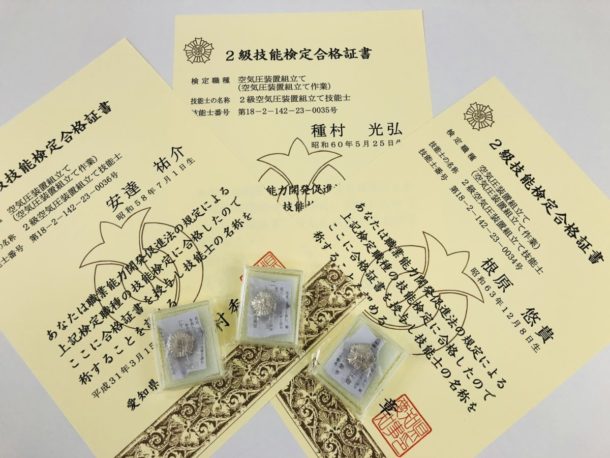 2級技能検定合格証書
検定職種 空気圧装置組立て
(空気圧装置組立て作業)
技能士の名称 2級空気圧装置組立て技能士
技能士番号 第18-2-142-23-0035号
種村 光弘
昭和60年5月25日
能力開発促進法
技能
級技能検定合格証書
空気圧装置組立て
(空気圧装置組立て作業)
の名称 2級空気圧装置組立て技能士
番号 第18-2-142-23-0036号
安達 祐介
昭和58年7月1日生
あなたは職業能力開発促進法の規定による
上記検定職種の技能検定に合格したので
ここに合格証書を授与し技能士の名称を
称することを
平成31年3月1
愛知県
村秀
2級技能検定合格証書
検定職種 空気圧装置組立て
(空気圧装置組立て作業)
技能士の名称 2級空気圧装置組立て技能士
技能士番号 第18-2-142-23-0034号
根原 悠貴
昭和63年12月8日生
あなたは職業能力開発促進法の規定による
上記検定職種の技能検定に合格したので
ここに合格証書を授与し技能士の名称を
称する
める
章